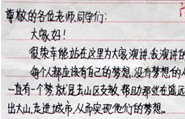 尊敬的各位老师,同学们:
大家好!
很荣幸能站在这里为大家演讲,我演讲的
每个人都应该有自己的梦想,没有梦想的人
一直有一个梦,就是去山区支教,帮助那些在
出大山,走进城市,从而实现他们的梦想。